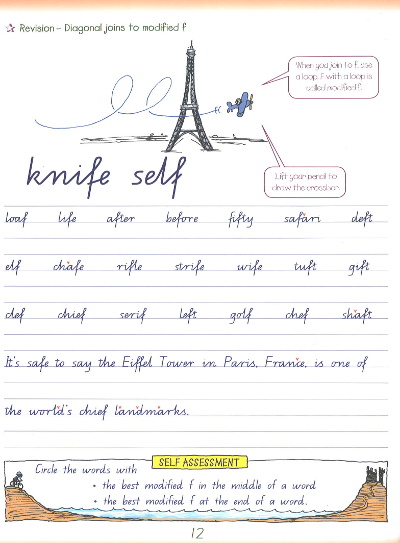 Revision – Diagonal joins to modified f
When you join to f, use
a loop. f with a loop is
called modified f.
Lift your pencil to
draw the crossbar.
knife self
loaf life after before fifty safari deft
elf chafe rifle strife wife tuft gift
clef chief serif left golf chef shaft
It's safe to say the Eiffel Tower in Paris, France, is one of
the world's chief landmarks.
SELF ASSESSMENT
Circle the words with
• the best modified f in the middle of a word
• the best modified f at the end of a word.
12